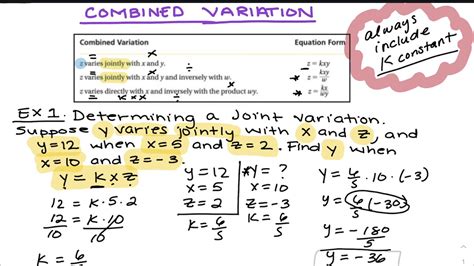 COMBINED VARIATION
always
include
K constant
Combined Variation Equation Form
= x
z varies jointly with x and y. ÷ z = kxy
= x
z varies jointly with x and y and inversely with w. * z = kxy/w
= k x x ÷
z varies directly with x and inversely with the product wy. * z = kx/wy
EX 1. Determining a Joint Variation.
Suppose y varies jointly with x and z, and
y=12 when x=5 and z=2. Find y when
x=10 and z=-3.
y = kxz
12 = K·5·2
12/10 = K·10/10
K = 6/5
y = 12
x = 5
z = 2
K = 6/5
*y = ?
x = 10
z = -3
K = 6/5
y = 6/5 · 10 · (-3)
y = 6/5 (-30)
y = -180/5
y = -36